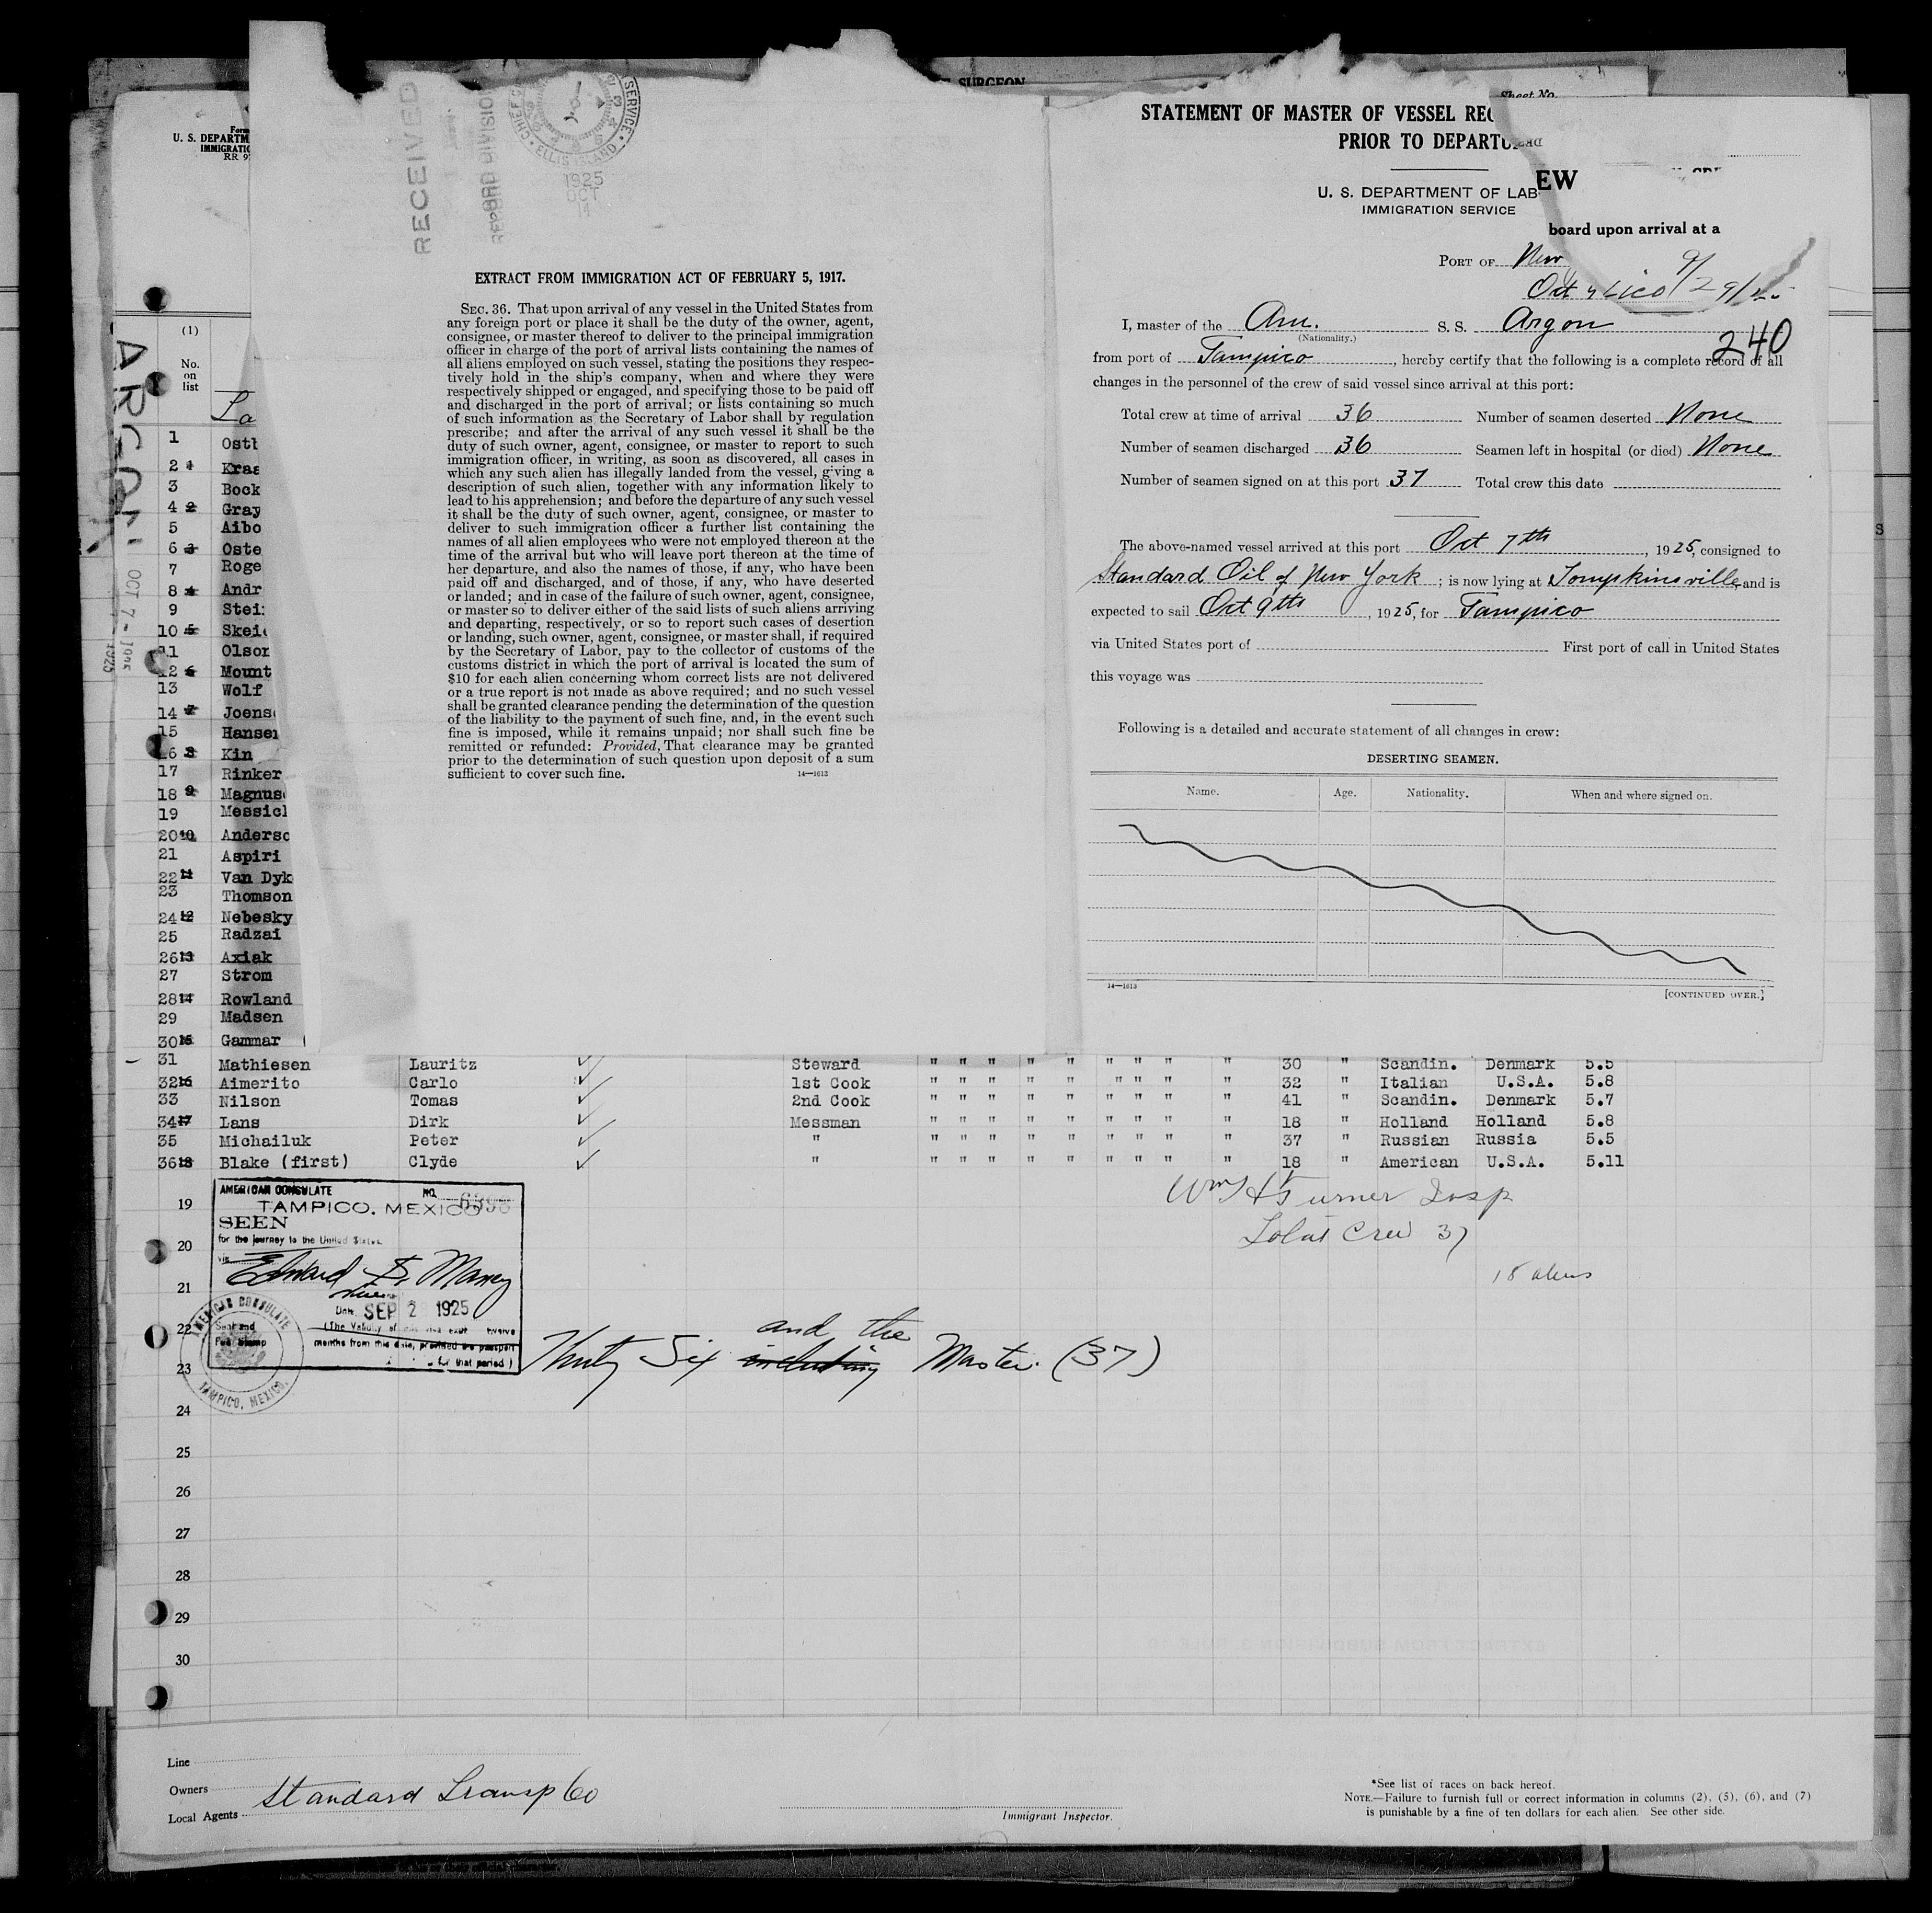 SURGEON
Sheet No.
Form
U. S. DEPARTM
IMMIGRATIO
RR 9
(1)
No.
on
list
La
ARGON
OCT 7 - 1925
1 Ostb
2 1 Kras
3 Bock
4 2 Gray
5 Aibo
6 3 Oste
7 Roge
8 4 Andr
9 Stei
10 5 Skei
11 Olsor
12 6 Mount
13 Wolf
14 7 Joens
15 Hanse
16 8 Kin
17 Rinker
18 9 Magnus
19 Messicl
20 10 Anderso
21 Aspiri
22 11 Van Dyk
23 Thomson
24 12 Nebesky
25 Radzai
26 13 Axiak
27 Strom
28 14 Rowland
29 Madsen
30 15 Gammar
RECEIVED
RECORD DIVISION
CHIEF
SERVICE
ELLIS ISLAND
1925
OCT
14
EXTRACT FROM IMMIGRATION ACT OF FEBRUARY 5, 1917.
SEC. 36. That upon arrival of any vessel in the United States from
any foreign port or place it shall be the duty of the owner, agent,
consignee, or master thereof to deliver to the principal immigration
officer in charge of the port of arrival lists containing the names of
all aliens employed on such vessel, stating the positions they respec-
tively hold in the ship's company, when and where they were
respectively shipped or engaged, and specifying those to be paid off
and discharged in the port of arrival; or lists containing so much
of such information as the Secretary of Labor shall by regulation
prescribe; and after the arrival of any such vessel it shall be the
duty of such owner, agent, consignee, or master to report to such
immigration officer, in writing, as soon as discovered, all cases in
which any such alien has illegally landed from the vessel, giving a
description of such alien, together with any information likely to
lead to his apprehension; and before the departure of any such vessel
it shall be the duty of such owner, agent, consignee, or master to
deliver to such immigration officer a further list containing the
names of all alien employees who were not employed thereon at the
time of the arrival but who will leave port thereon at the time of
her departure, and also the names of those, if any, who have been
paid off and discharged, and of those, if any, who have deserted
or landed; and in case of the failure of such owner, agent, consignee,
or master so to deliver either of the said lists of such aliens arriving
and departing, respectively, or so to report such cases of desertion
or landing, such owner, agent, consignee, or master shall, if required
by the Secretary of Labor, pay to the collector of customs of the
customs district in which the port of arrival is located the sum of
$10 for each alien concerning whom correct lists are not delivered
or a true report is not made as above required; and no such vessel
shall be granted clearance pending the determination of the question
of the liability to the payment of such fine, and, in the event such
fine is imposed, while it remains unpaid; nor shall such fine be
remitted or refunded: Provided, That clearance may be granted
prior to the determination of such question upon deposit of a sum
sufficient to cover such fine.
14—1613
STATEMENT OF MASTER OF VESSEL REG
PRIOR TO DEPARTU
EW
U. S. DEPARTMENT OF LAB
IMMIGRATION SERVICE
board upon arrival at a
PORT OF New
Oct 9 9/29/25
I, master of the Am. S. S. Argon
(Nationality.)
240
from port of Tampico, hereby certify that the following is a complete record of all
changes in the personnel of the crew of said vessel since arrival at this port:
Total crew at time of arrival 36 Number of seamen deserted None
Number of seamen discharged 36 Seamen left in hospital (or died) None
Number of seamen signed on at this port 37 Total crew this date
The above-named vessel arrived at this port Oct 7th, 1925, consigned to
Standard Oil of New York; is now lying at Tompkinsville and is
expected to sail Oct 9th, 1925, for Tampico
via United States port of First port of call in United States
this voyage was
Following is a detailed and accurate statement of all changes in crew:
DESERTING SEAMEN.
Name. Age. Nationality. When and where signed on.
14—1613
[CONTINUED OVER.]
31 Mathiesen Lauritz Steward " " " " " " " " " 30 " Scandin. Denmark 5.5
32 16 Aimerito Carlo 1st Cook " " " " " " " " " 32 " Italian U.S.A. 5.8
33 Nilson Tomas 2nd Cook " " " " " " " " " 41 " Scandin. Denmark 5.7
34 17 Lans Dirk Messman " " " " " " " " " 18 " Holland Holland 5.8
35 Michailuk Peter " " " " " " " " " " 37 " Russian Russia 5.5
36 18 Blake (first) Clyde " " " " " " " " " " 18 " American U.S.A. 5.11
Wm H Turner Insp
Total Crew 37
18 aliens
19
20
21
22
23
24
25
26
27
28
29
30
AMERICAN CONSULATE
NO.
TAMPICO, MEXICO
SEEN
for the journey to the United States.
via
Edward S. Maney
Date SEP 2 1925
(The Validity of this visa twelve
months from this date, provided the passport
for that period)
AMERICAN CONSULATE
Seal and
Fee Stamp
TAMPICO, MEXICO.
and the
Thirty Six including Master. (37)
Line
Owners
Standard Transp Co
Local Agents
Immigrant Inspector.
*See list of races on back hereof.
NOTE.—Failure to furnish full or correct information in columns (2), (5), (6), and (7)
is punishable by a fine of ten dollars for each alien. See other side.